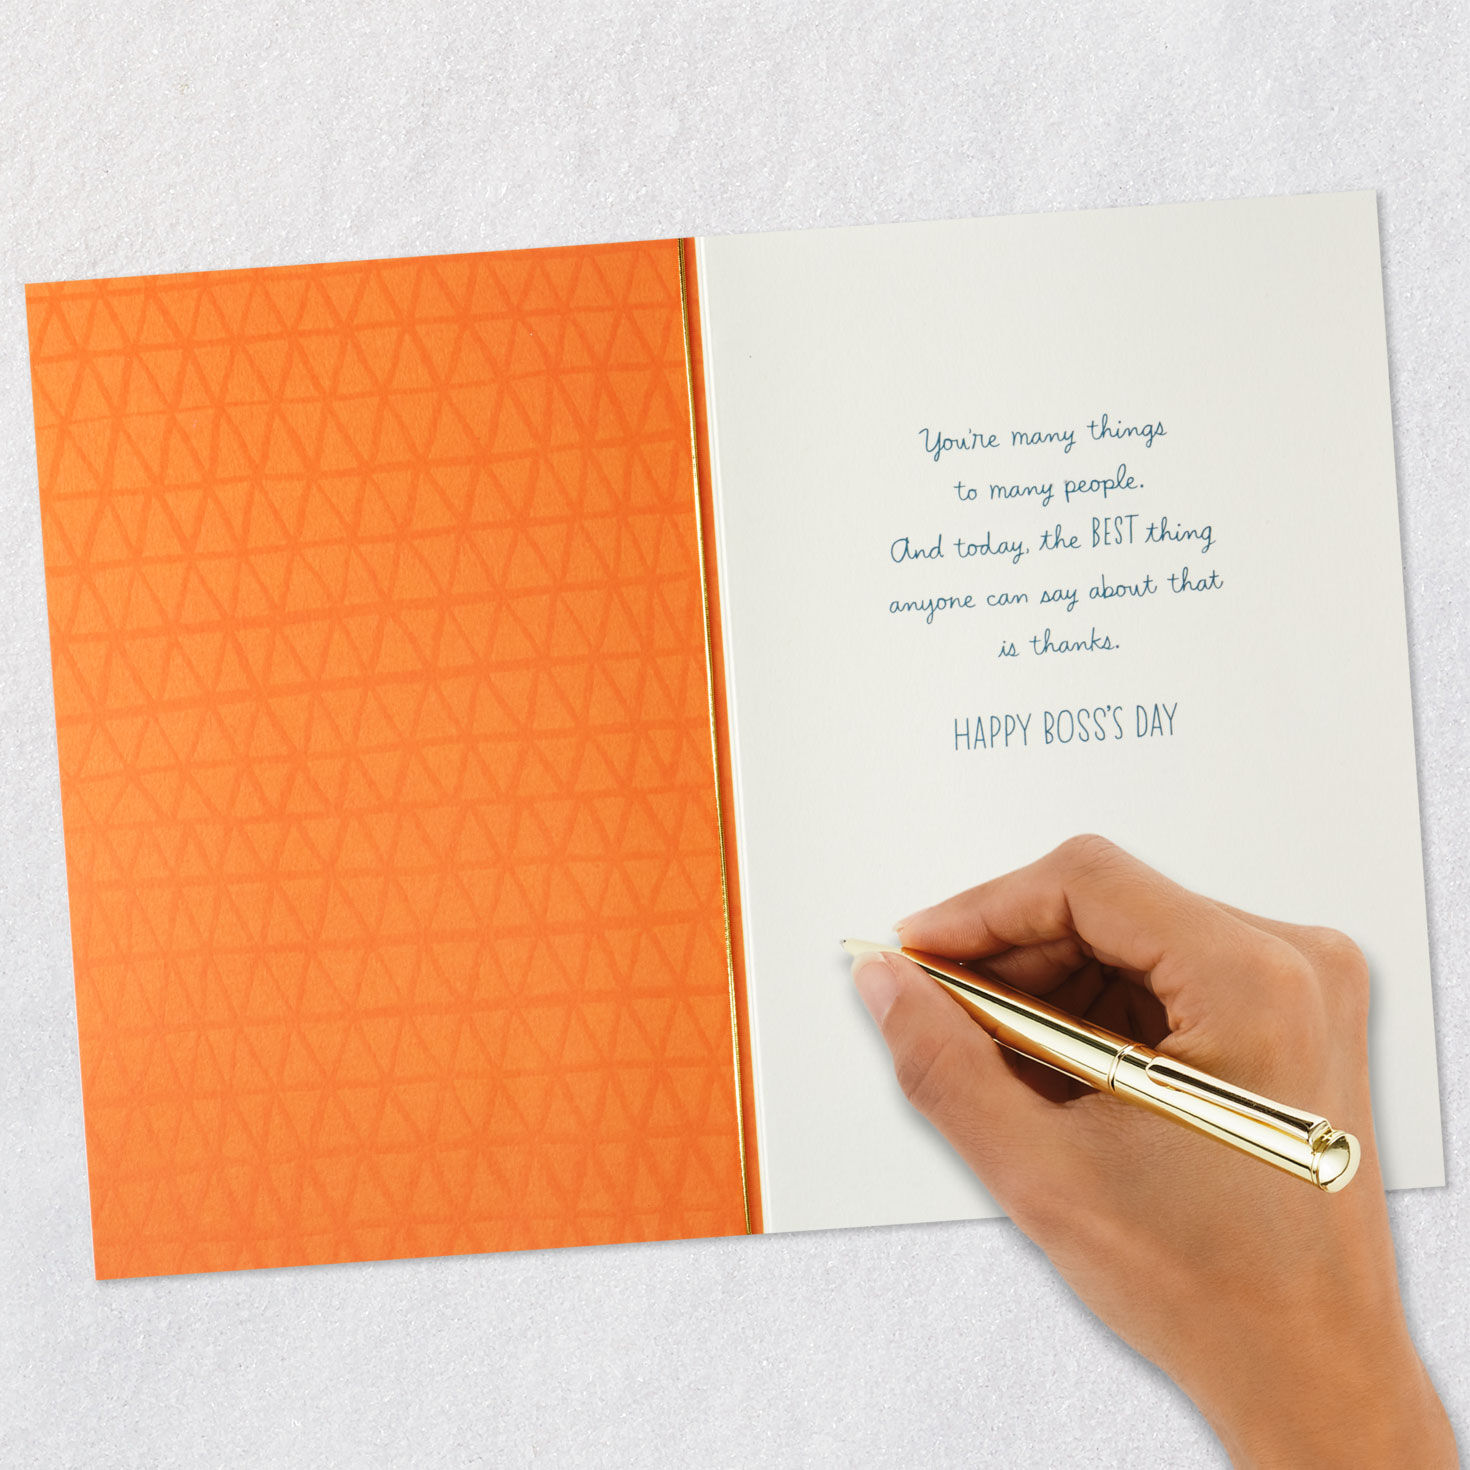 You're many things
to many people.
And today, the BEST thing
anyone can say about that
is thanks.
HAPPY BOSS'S DAY